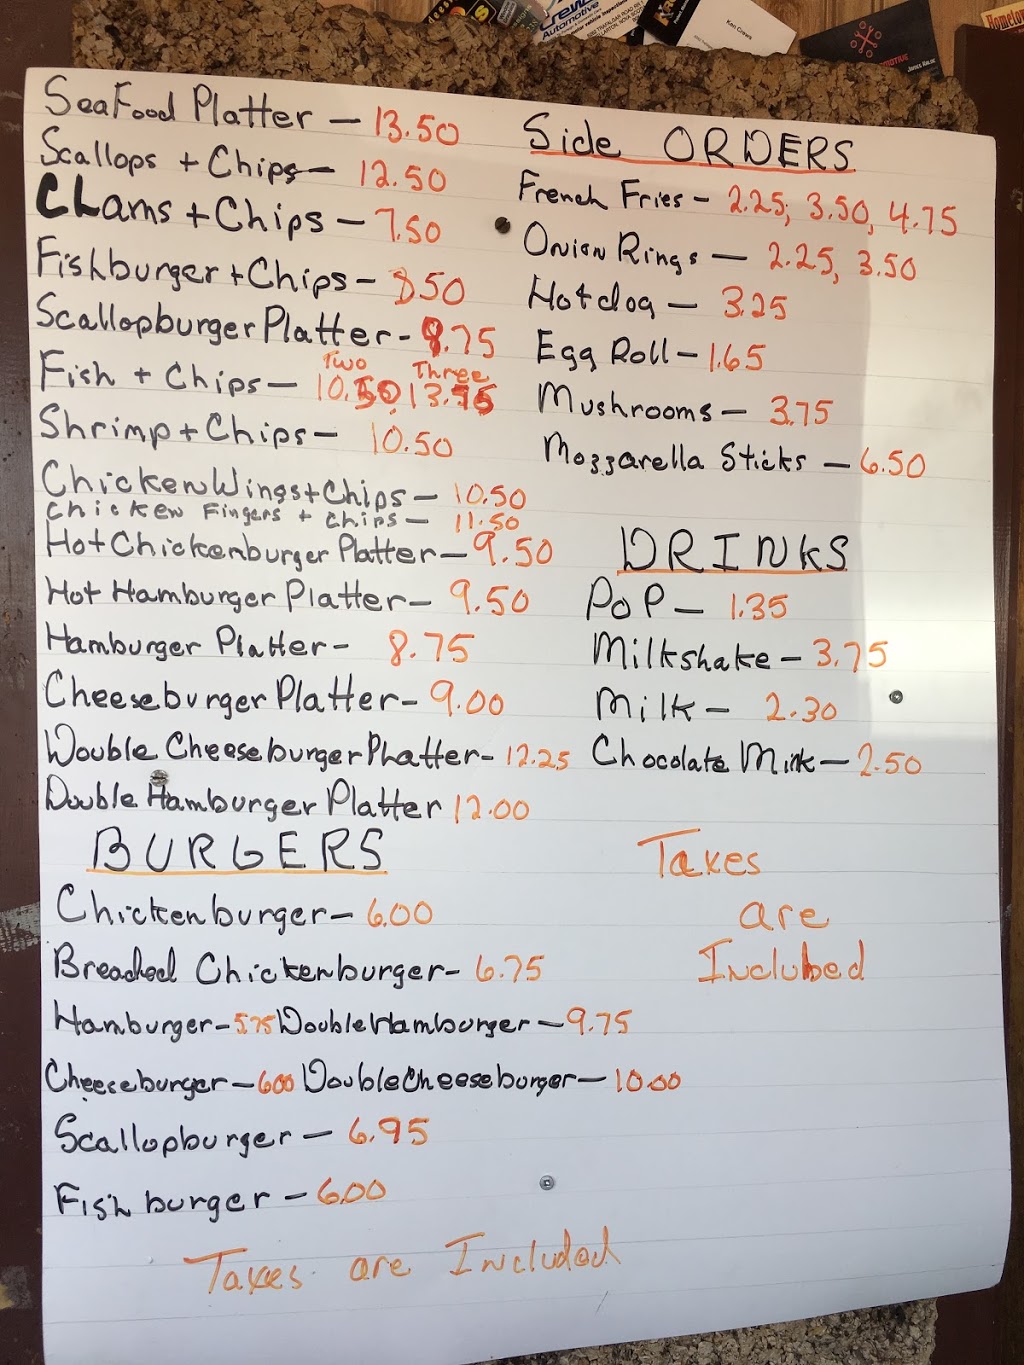 Crew
Automotive
Ken Crews
James Halse
Hometow
SeaFood Platter - 13.50
Scallops + Chips - 12.50
CLams + Chips - 7.50
Fishburger + Chips - 8.50
Scallopburger Platter - 9.75
Two Three
Fish + Chips - 10.50, 13.75
Shrimp + Chips - 10.50
Chicken Wings + Chips - 10.50
Chicken Fingers + Chips - 11.50
Hot Chickenburger Platter - 9.50
Hot Hamburger Platter - 9.50
Hamburger Platter - 8.75
Cheeseburger Platter - 9.00
Double Cheeseburger Platter - 12.25
Double Hamburger Platter 12.00
BURGERS
Chickenburger - 6.00
Breaded Chickenburger - 6.75
Hamburger - 5.75 Double Hamburger - 9.75
Cheeseburger - 6.00 Double Cheeseburger - 10.00
Scallopburger - 6.95
Fishburger - 6.00
Taxes are Included
Side ORDERS
French Fries - 2.25, 3.50, 4.75
Onion Rings - 2.25, 3.50
Hotdog - 3.25
Egg Roll - 1.65
Mushrooms - 3.75
Mozzarella Sticks - 6.50
DRINKS
PoP - 1.35
Milkshake - 3.75
Milk - 2.30
Chocolate Milk - 2.50
Taxes
are
Included